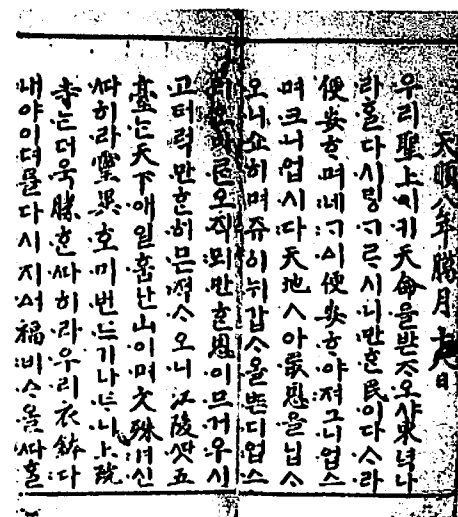 天順八年臘月十八日
우리聖上이키天命을받ᄌᆞ오샤東녁나
라ᄒᆞᆯ다시ᄆᆡᇰᄀᆞᄅᆞ시니만ᄒᆞᆫ民이다사라
便安ᄒᆞ며네ᄀᆞᅀᅵ便安ᄒᆞ야져그니업스
며크니업시다天地ㅅ恩을닙ᄉᆞ
오니쇼히며쥬이뉘갑ᄉᆞ올ᄠᅳ디업스
리오마ᄅᆞᆫ오직뫼만ᄒᆞᆫ恩이므거우시
고터럭만ᄒᆞᆫ히믄젹ᄉᆞ오니江陵ㅅᄯᅡ五
臺ᄂᆞᆫ天下애일훔난山이며文殊겨신
ᄯᅡ히라靈異호미번드기나ᄂᆞ니上院
寺ᄂᆞᆫ더욱勝ᄒᆞᆫᄯᅡ히라우리衣鉢다
내야이뎌를다시지ᅀᅥ福비ᅀᆞ올ᄯᅡ홀